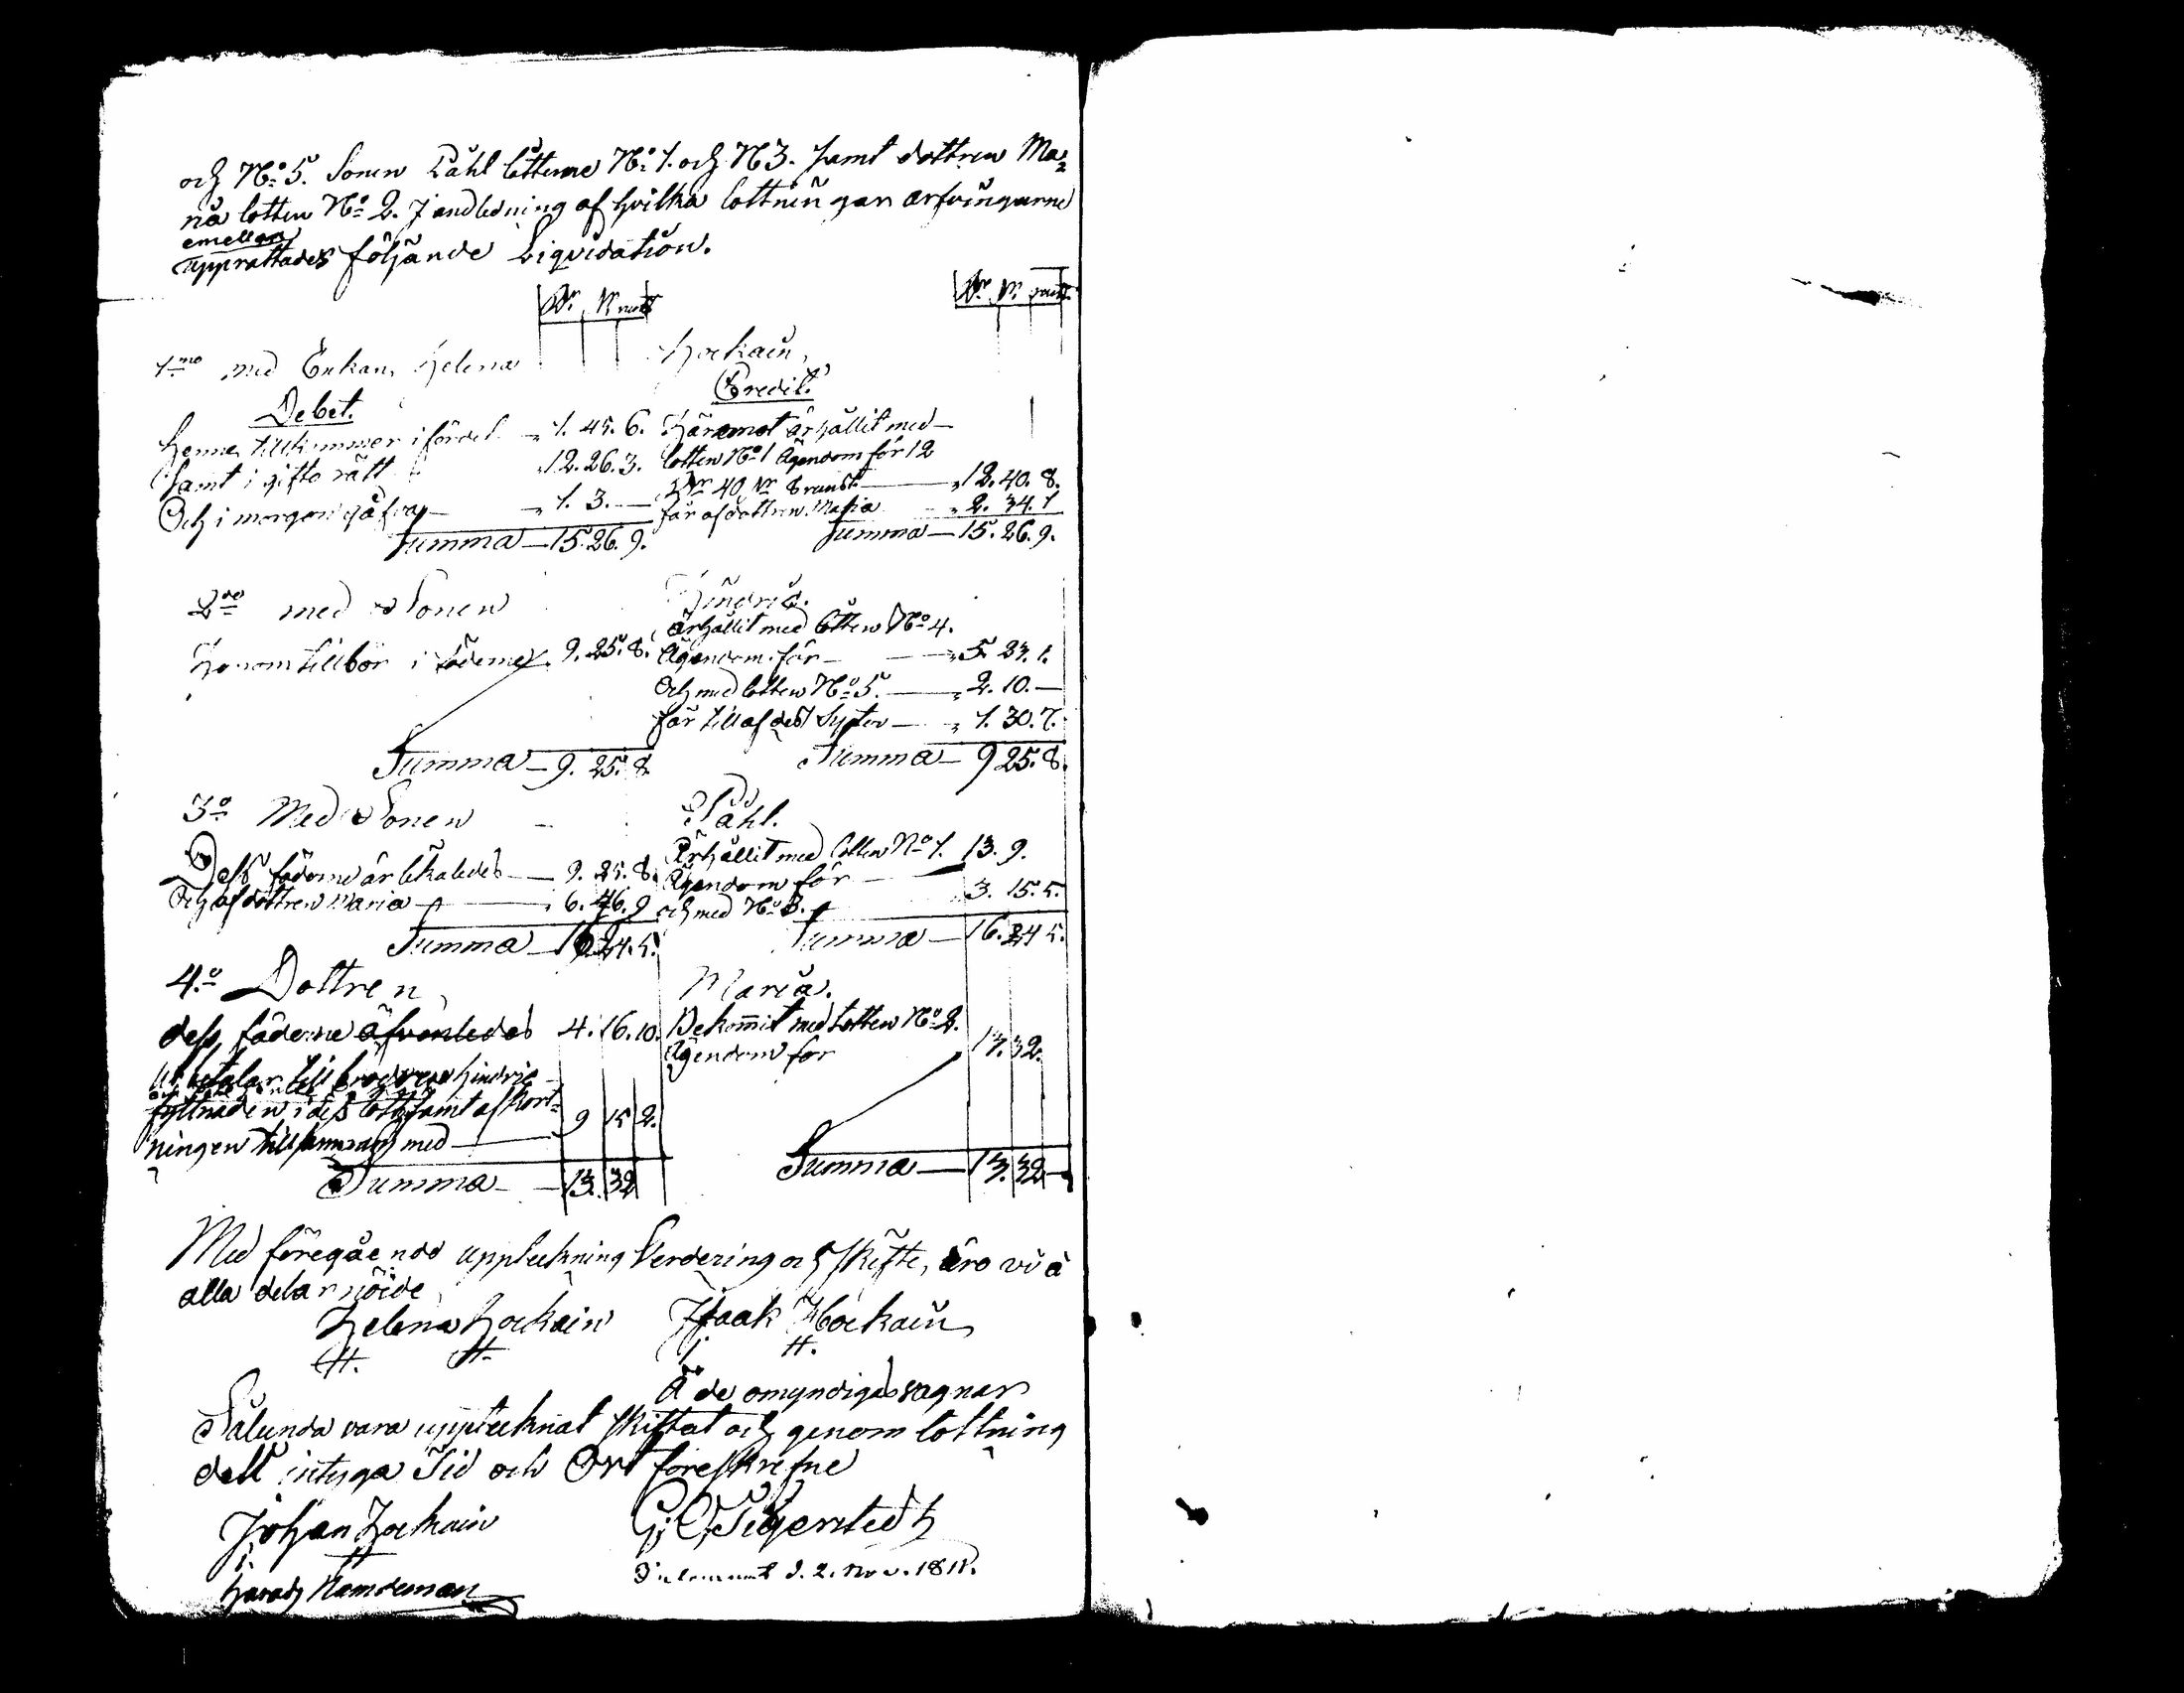 och N:o 5. Sonen Påhl lotterne N:o 1. och N 3. samt dottren Ma=
ria lotten N:o 2. I andledning af hvilka lottningar arfvingarne
emellan
upprättades följande Liquidation.
Rdr. sk. runst. Rdr. sk. runst.
1:mo med Enkan, Helena Hockain,
Debet. Credit.
Henne tillkommer i fördel 1. 45. 6. Häremot ärhållit med
Samt i gifto rätt 12. 26. 3. lotten N:o 1 Ägendom för 12
Rdr 40 sk 8 runst 12. 40. 8.
Och i morgon gåfva 1. 3. — får af dottren Maria 2. 34. 1
Summa 15. 26. 9. Summa 15. 26. 9.
2:do med Sonen Hindric.
ärhållit med lotten N:o 4.
Honom tillbör i föderne 9. 25. 8. Ägendom för 5. 23. 1.
Och med lotten N:o 5. 2. 10. —
får till af dess Syster 1. 30. 7.
Summa 9. 25. 8. Summa 9 25. 8.
3:o Med Sonen Påhl.
Ärhållit med lotten N:o 1. 13. 9.
Dess föderne är likaledes 9. 25. 8. Ägendom för
Och af dottren Maria 6. 46. 9 och med N:o 3. 3. 15. 5.
Summa 16 24. 5. Summa 16. 24 5.
4:o Dottren Maria.
dess föderne äfvenledes 4. 16. 10. Bekommit med Lotten N:o 2.
Ägendom för 13. 32.
Utbetalar till brodren Hindric
fyllnaden i dess lott samt afkort=
ningen tillsammans med 9 15 2.
Summa 13. 32 Summa 13. 32
Med föregående uppteckning Verdering och skifte, äro vi å
alla delar nöide
Helena Hockain Isaak Hockain
H. H. I H.
Å de omyndigas vägnar
Sålunda vara upptecknat skiftat och genom lottning
delt intyga Tid och Ort föreskrefne
Johan Hockain
I. H
d. 2. Nov. 1811.
Härads Nämdeman